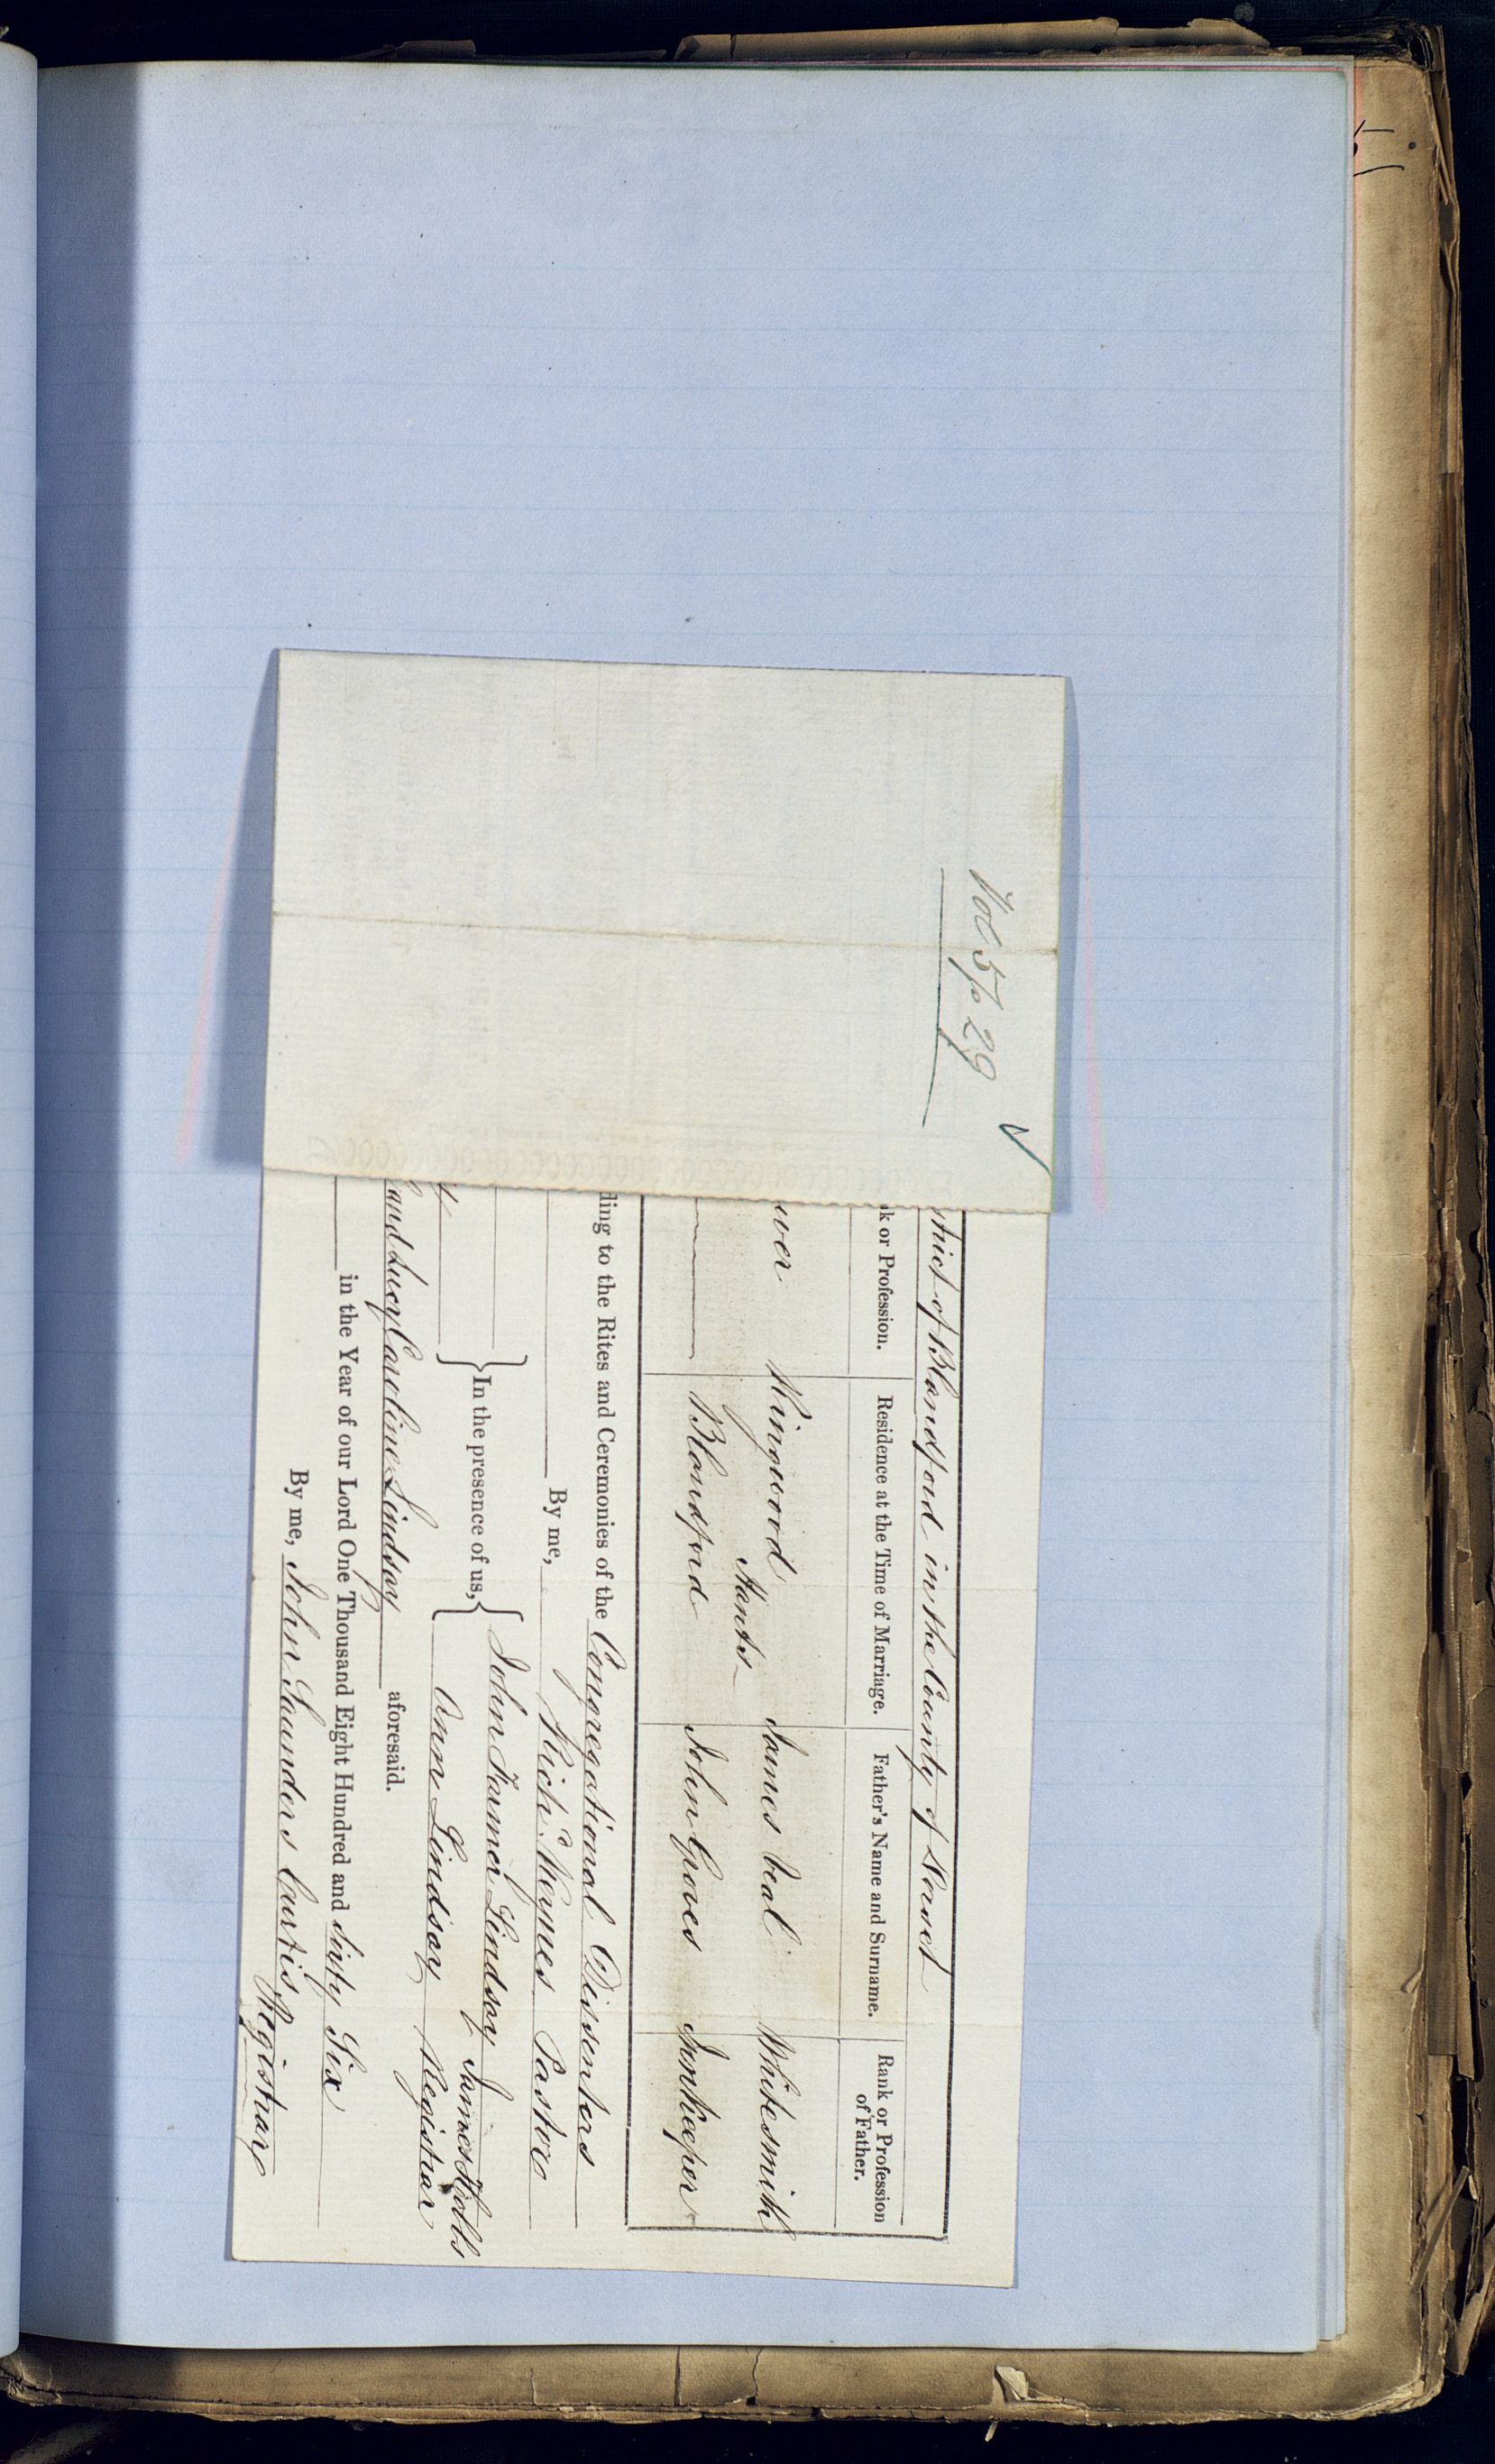 Vol 5 p 29
strict of Blandford in the County of Dorset
k or Profession. Residence at the Time of Marriage. Father's Name and Surname. Rank or Profession of Father.
wer Ringwood Hants James Veal Whitesmith
Blandford John Groves Innkeeper
ding to the Rites and Ceremonies of the Congregational Dissenters
By me, Richd. Keynes Pastor
In the presence of us, John Turner Lindsay James Hobbs
Ann Lindsay Registrar
and Lucy Caroline Lindsay aforesaid.
in the Year of our Lord One Thousand Eight Hundred and Sixty Six
By me, John Saunders Curtis Registrar